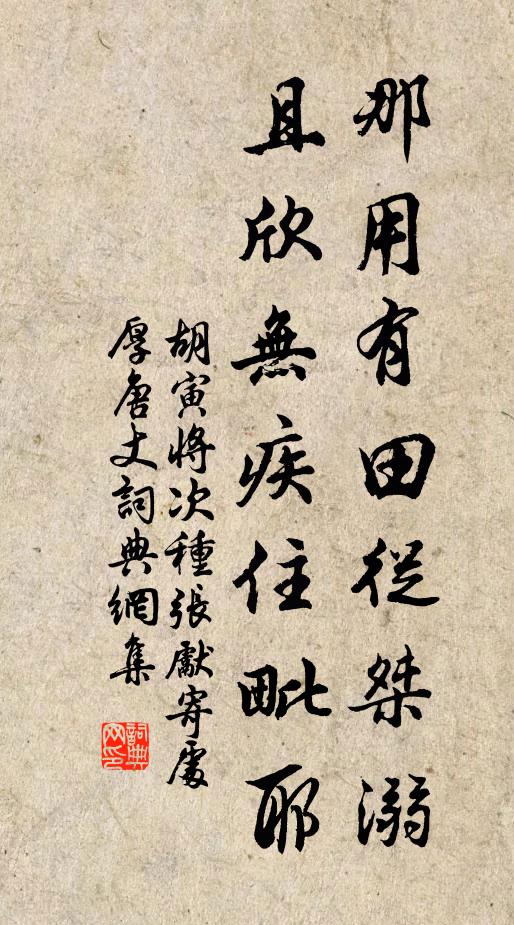 那用有田從桀溺
且欣無疾住毗耶
胡寅將次種張獻寄處
厚唐丈詞典網集
詞典
网印